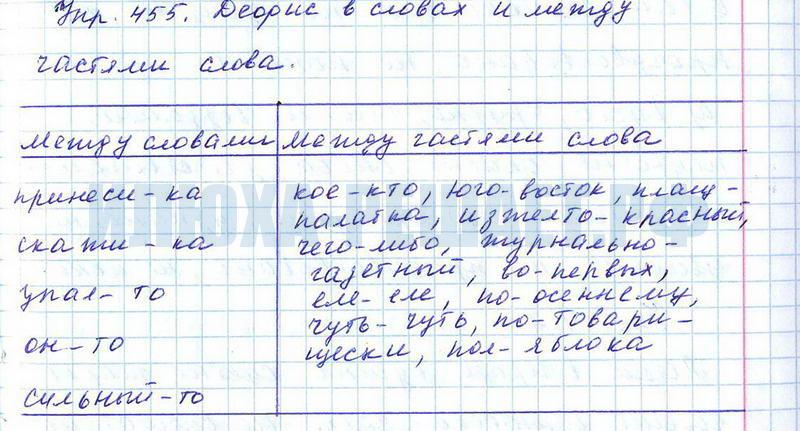 Упр. 455. Дефис в словах и между
частями слова.
Между словами Между частями слова
принеси-ка
скажи-ка
упал-то
он-то
сильный-то
кое-кто, юго-восток, плащ-
палатка, изжелта-красный,
чего-либо, журнально-
газетный, во-первых,
еле-еле, по-осеннему,
чуть-чуть, по-товари-
щески, пол-яблока